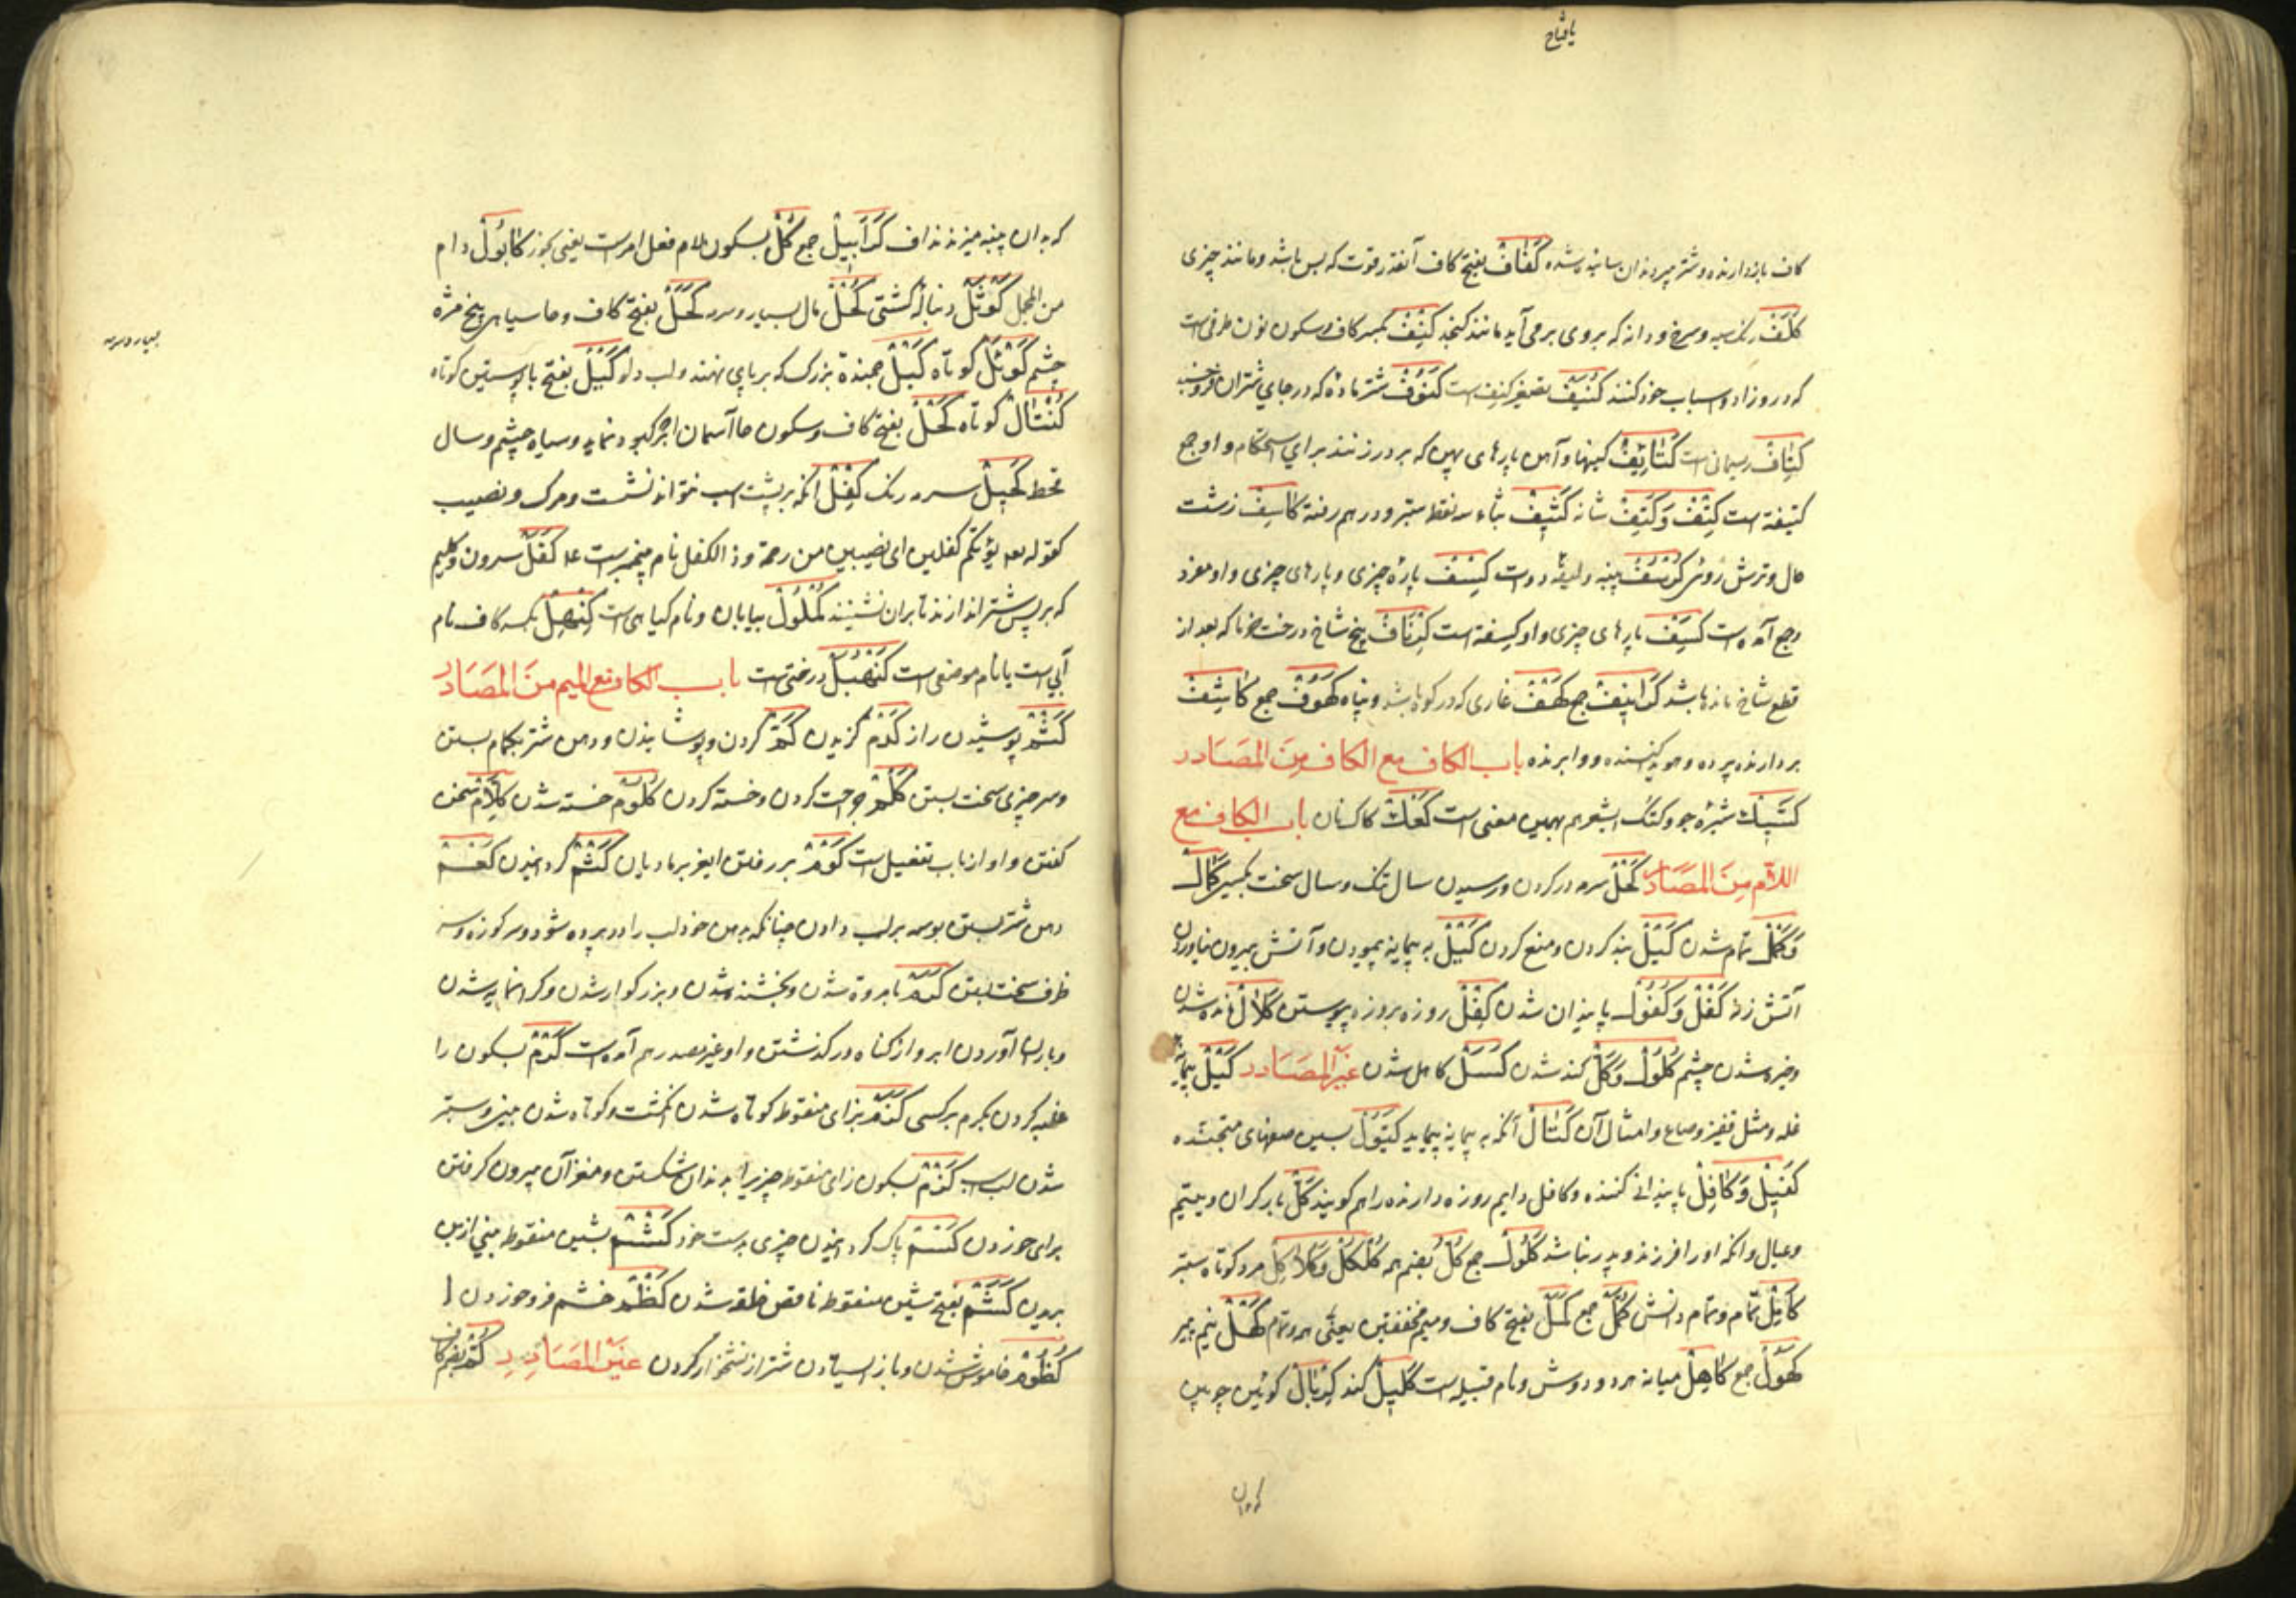 کاف بازدارنده و شتر پیر دندان ساییده شده كَفَافْ بفتح کاف آنقدر قوت که بس باشد و مانند چیزی
كَلَفْ رنک سیه و سرخ و دانه که بروی برمی آید مانند کنجد كِنْفْ بکسر کاف و سکون نون ظرفی است
که درو زاد و اسباب خود کنند كُنَيْفْ تصغیر کنف است كَنُوفْ شتر ماده که در جای شتران فرو خسبد
كِتَافْ ریسمانی است كَتَائِفْ کینها و آهن پارهای پهن که بر در زنند برای استحکام و او جمع
کتیفه است كِتْفْ وَكَتِفْ شانه كَثِيفْ بثاء سه نقطه ستبر و درهم رفته كَاسِفْ زشت
حال و ترش روی كُرْسُفْ پنبه و لیقه دوات كِسْفْ پاره چیزی و پارهای چیزی و او مفرد
و جمع آمده است كِسَفْ پارهای چیزی و او کسفه است كِرْنَافْ بیخ شاخ درخت خرما که بعد از
قطع شاخ مانده باشد كَرَانِيفْ جمع كَهْفْ غاری که در کوه باشد و پناه كُهُوفْ جمع كَاشِفْ
بردارنده پرده و هویدا کننده و وابرنده باب الكاف مع الكاف مِنَ المَصَادر
كَشِيكْ شیرۀ جو و کشک الشعیر هم بهمین معنی است كَعْكْ کاک نان باب الكاف مع
اللام مِنَ المصَادر كَحْلْ سرمه در کردن و رسیدن سال تنک و سال سخت بکسی كَمَالْ
وَكَمْلْ تمام شدن كَبْلْ بند کردن و منع کردن كَيْلْ به پیمانه پیمودن و آتش بیرون نیاوردن
آتش زنه كَفْلْ وَكُفُولْ پایندان شدن كِفْلْ روزه بروزه پیوستن كَلَالْ مانده شدن
و خیره شدن چشم كُلُولْ وَكَلْ کند شدن كَسَلْ کاهل شدن غَيْرُ المصَادر كَيْلْ پیمانه
غله و مثل قفیز و صاع و امثال آن كَيَّالْ آنکه به پیمانه پیماید كَيُّولْ پسین صفهای
كَفِيلْ وَكَافِلْ پایندانی کننده و کافل دایم روزه دارنده را هم کویند كَلّ بار کران و یتیم
و عیال و آنکه او را فرزند و پدر نباشد كُلُولْ جمع كُلّ بضم همه كُلْكُلْ وَكُلَاكِلْ مرد کوتاه ستبر
كَامِلْ تمام و تمام دانش كُمَّلْ جمع كَمَلْ بفتح کاف و میم مخففتین یعنی همه و تمام كَهْلْ نیم پیر
كُهُولْ جمع كَاهِلْ میانه هر دو دوش و نام قبیله است كَلِيلْ کند كِرْبَالْ
که بدان پنبه میزنند نداف كَرَابِيلْ جمع كُلْ بسکون لام فعل امرست یعنی بخور كَابُولْ دام
من المجمل كَوْثَلْ دنبالۀ کشتی كُحْلْ مال بسیار و سرمه كَحَلْ بفتح کاف و حا سیاهی بیخ مژه
چشم كَوْتَلْ کوتاه كَبْلْ بند بزرک که بر پای نهند و لب دلو كَبَلْ بفتح با پوستین کوتاه
كُنْتَالْ کوتاه كَحْلْ بفتح کاف و سکون حا آسمان و سیاه چشم و سال
قحط كَحِيلْ سرمه رنک كِفْلْ آنکه بر پشت اسب نتواند نشست و مرک و نصیب
کقوله یؤتکم کفلین ای نصیبین من رحمة و ذا الکفل نام پیغمبرست كَفَلْ سرون و کلیم
که بر پس شتر اندازند تا بر آن نشینند كُمْلُولْ بیابان و نام کیاهی است كِنْهِلْ بکسر کاف نام
آبی است یا نام موضعی است كَنَهْبُلْ درختی است باب الكاف مع الميم مِنَ المَصَادر
كَتْمْ پوشیدن راز كَدْمْ کزیدن كَمّ کردن و پوشانیدن و دهن شتر بکمام بستن
و سر چیزی سخت بستن كَلْمْ جراحت کردن و خسته کردن كُلُومْ خسته شدن كَلَامْ سخن
کفتن و او از باب تفعیل است كَوْمْ بر رفتن ایغر بر مادیان كَثْمْ کردانیدن كَعْمْ
دهن شتر بستن بوسه بر لب دادن چنانکه دهن خود لب را در برده شود و سر کوزه و سر
ظرف سخت بستن كَرَمْ بامروة شدن و بخشنده شدن و بزرکوار شدن و کرانمایه شدن
و باران آوردن ابر و از کناه درکذشتن و او غیر مصدر هم آمده است كَرْمْ بسکون را
غلبه کردن بکرم بر کسی كَزَمْ بزای منقوط کوتاه شدن انکشت و کوتاه شدن بینی و ستبر
شدن لب اسب كَزْمْ بسکون زای منقوط چیزیرا بدندان شکستن و مغز آن بیرون کرفتن
برای خوردن كَسْمْ پاک کردانیدن چیزی بدست خود كَشْمْ بشین منقوط بینی از بن
بریدن كَشَمْ بفتح شین منقوط ناقص خلقه شدن كَظْمْ خشم فرو خوردن
كُظُومْ خاموش شدن و باز ایستادن شتر از نشخوار کردن غَيْرُ المَصَادِرِ كُمّ بضم کاف